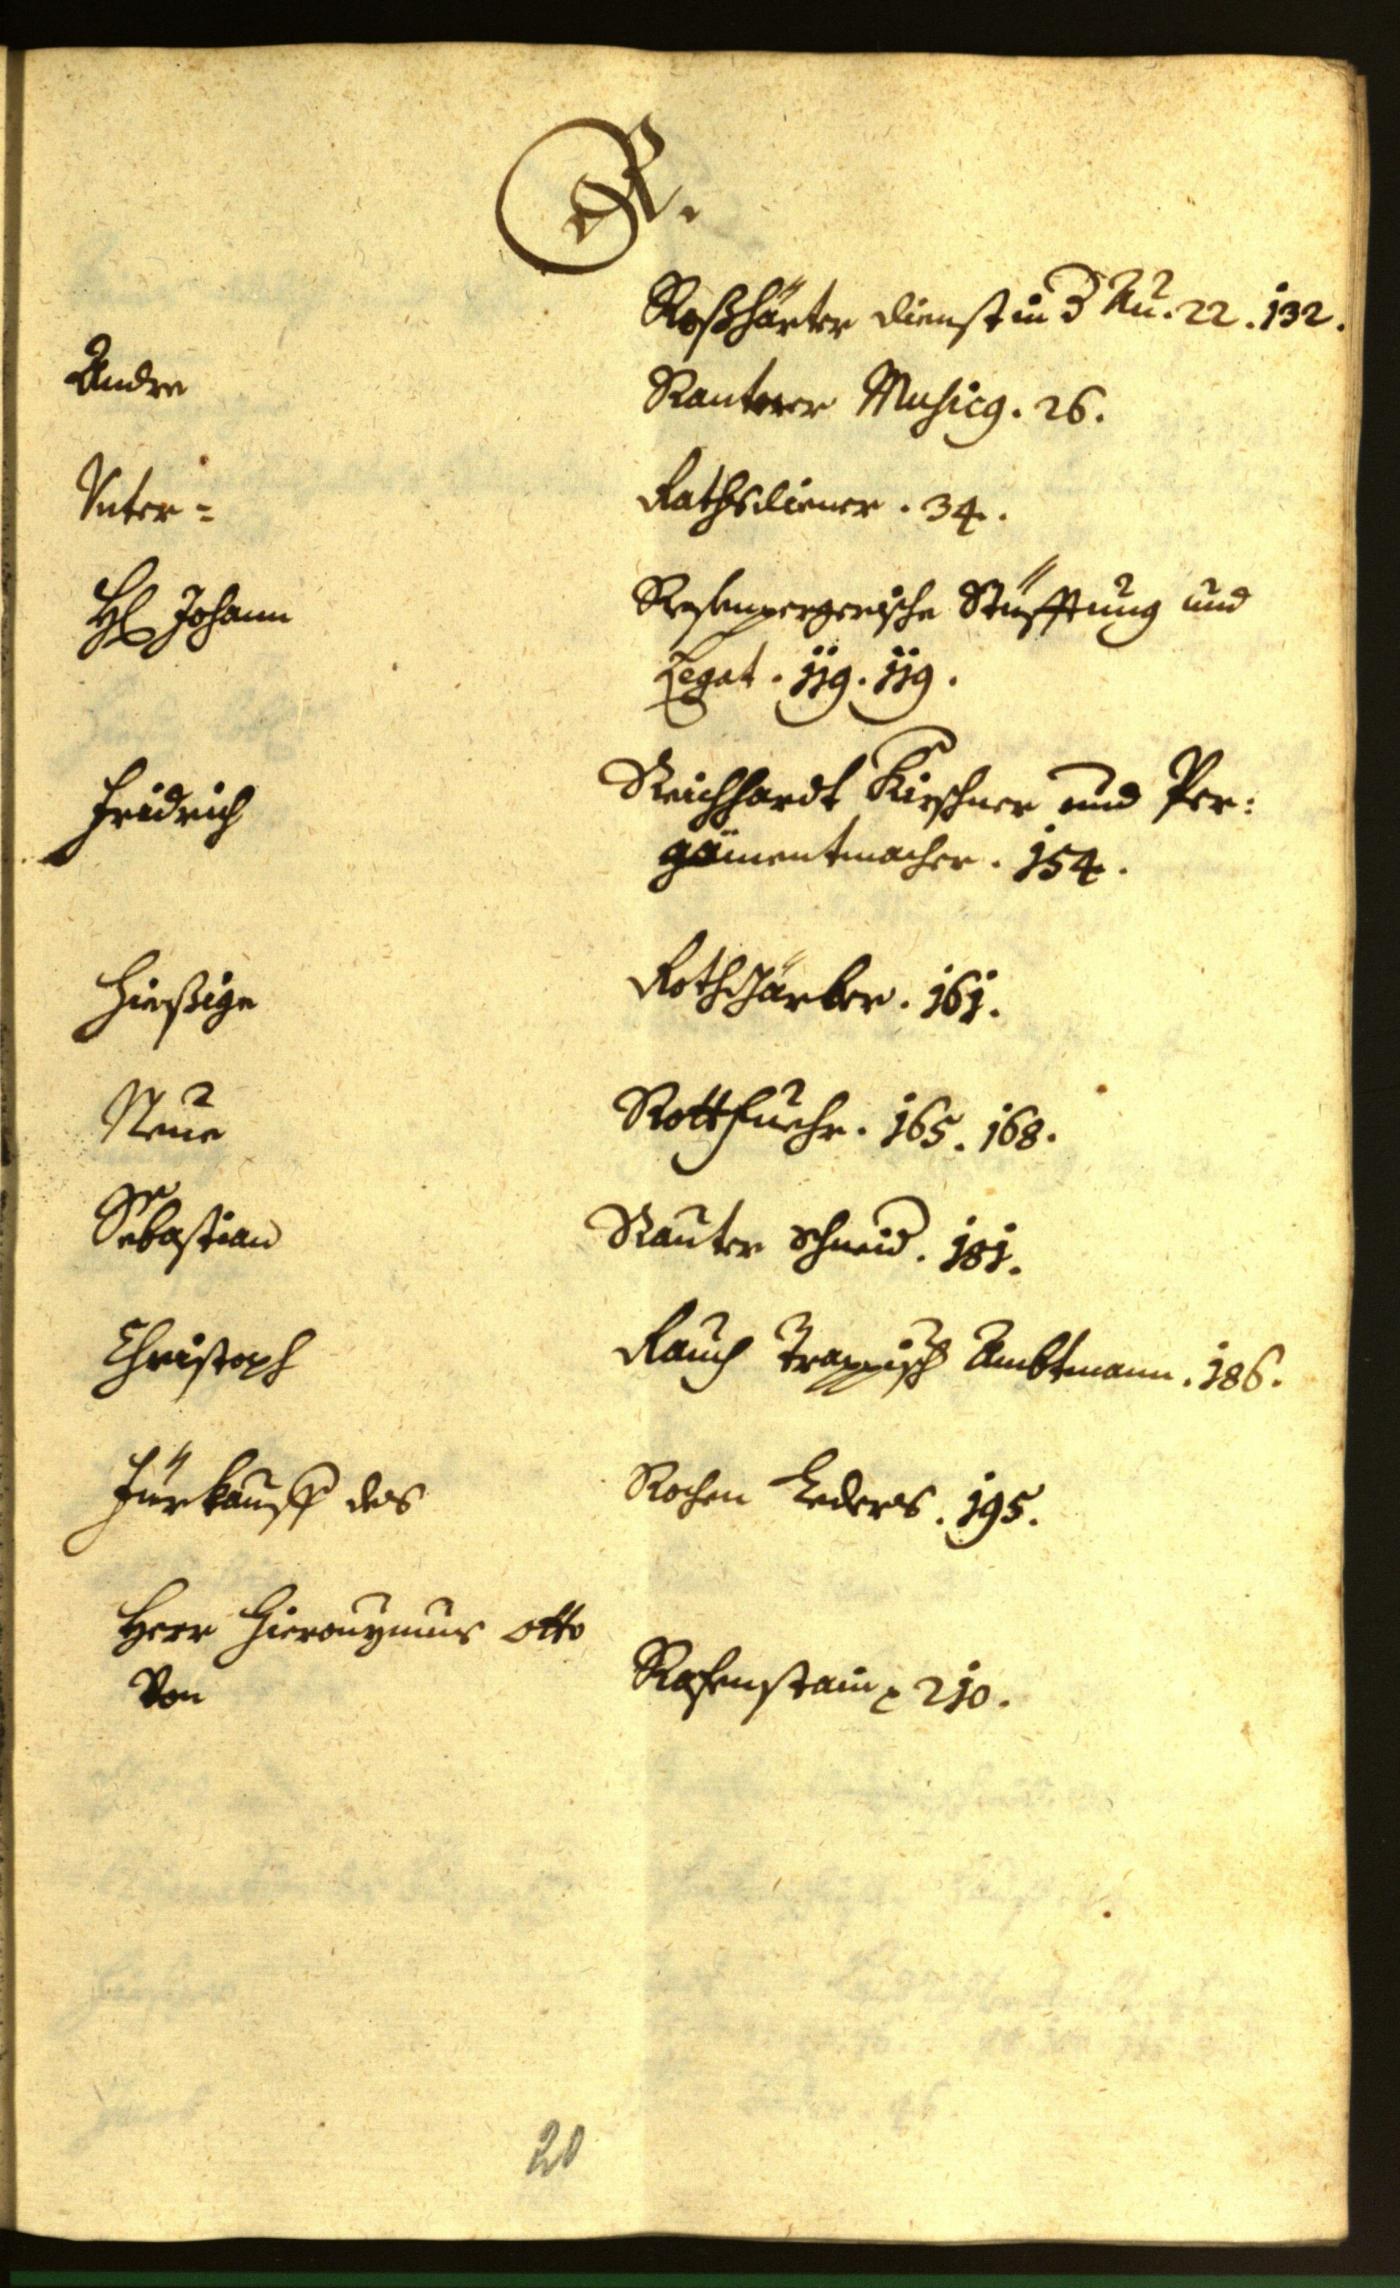 R.
Roßhürter dienst in d Au. 22. 132.
Andre Rauterer Musicg. 26.
Vnter= Rathsdiener. 34.
Hl Johann Rosenpergerische Stüfftung und
Legat. 119. 119.
Fridrich Reichhardt Kirschner und Per:
gämentmacher. 154.
Hießige Rothgärber. 161.
Neue Rottfuehr. 165. 168.
Sebastian Rauter schneid. 181.
Christoph Rauch Trappisch Ambtmann. 186.
Fürkauff des Rochen Leders. 195.
Herr Hieronymus Otto
Von Rosenstain 210.
20